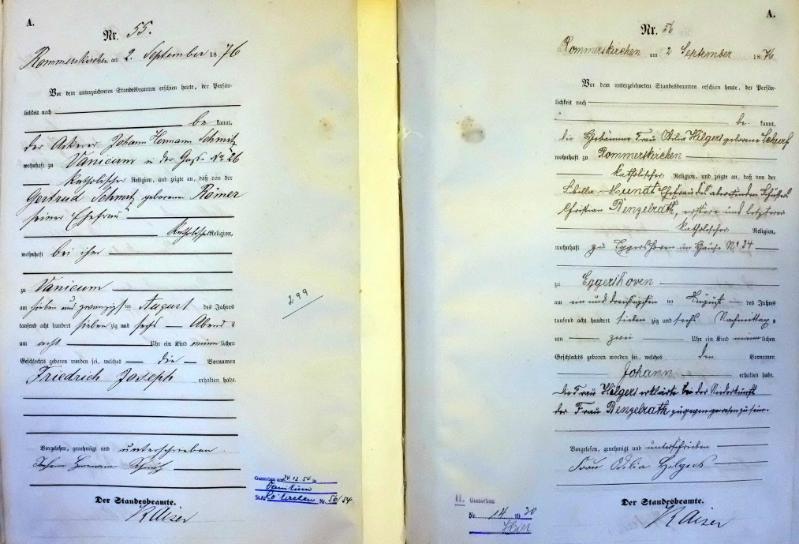 A.
Nr. 55.
Rommerskirchen am 2. September 1876
Vor dem unterzeichneten Standesbeamten erschien heute, der Persön-
lichkeit nach
be kannt,
der Ackerer Johann Hermann Schmitz
wohnhaft zu Vanicum in der Nr. 26
katholischer Religion, und zeigte an, daß von der
Gertrud Schmitz geborene Römer
seiner Ehefrau
katholischer Religion,
wohnhaft bei ihm
zu Vanicum
am sieben und zwanzigsten August des Jahres
tausend acht hundert sieben zig und sechs Abends
um acht Uhr ein Kind männlichen
Geschlechts geboren worden sei, welches die Vornamen
Friedrich Joseph erhalten habe.
Vorgelesen, genehmigt und unterschrieben
Johann Hermann Schmitz
Der Standesbeamte.
Kaiser
299
24.12.54
Nr. 50/54
A.
Nr. 56
Rommerskirchen am 2 September 1876
Vor dem unterzeichneten Standesbeamten erschien heute, der Persön-
lichkeit nach
be kannt,
die Hebamme Frau Odilia Hilgers geborene
wohnhaft zu Rommerskirchen
katholischer Religion, und zeigte an, daß von der
Sibilla Ehefrau des
Christian Rengelrath, und letzterer
katholischer Religion,
wohnhaft zu Eggershoven im Hause No 34
zu Eggershoven
am ein und dreißigsten August des Jahres
tausend acht hundert sieben zig und sechs Nachmittags
um zwei Uhr ein Kind männlichen
Geschlechts geboren worden sei, welches den Vornamen
Johann erhalten habe.
Die Frau Hilgers erklärte bei der Niederkunft
der Frau Rengelrath zugegen gewesen zu sein.
Vorgelesen, genehmigt und unterschrieben
Frau Odilia Hilgers
Der Standesbeamte.
Kaiser